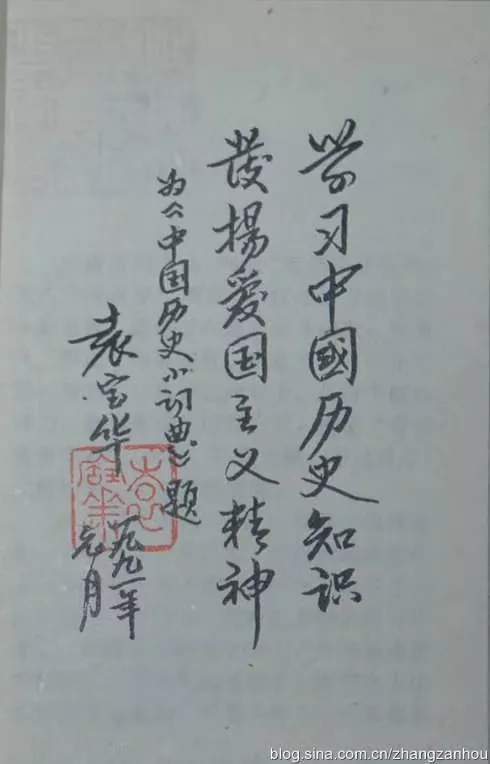 学习中國历史知识
发揚爱国主义精神
为《中国历史小词典》题
袁宝华
一九九一年
元月
袁宝华
blog.sina.com.cn/zhangzanhou